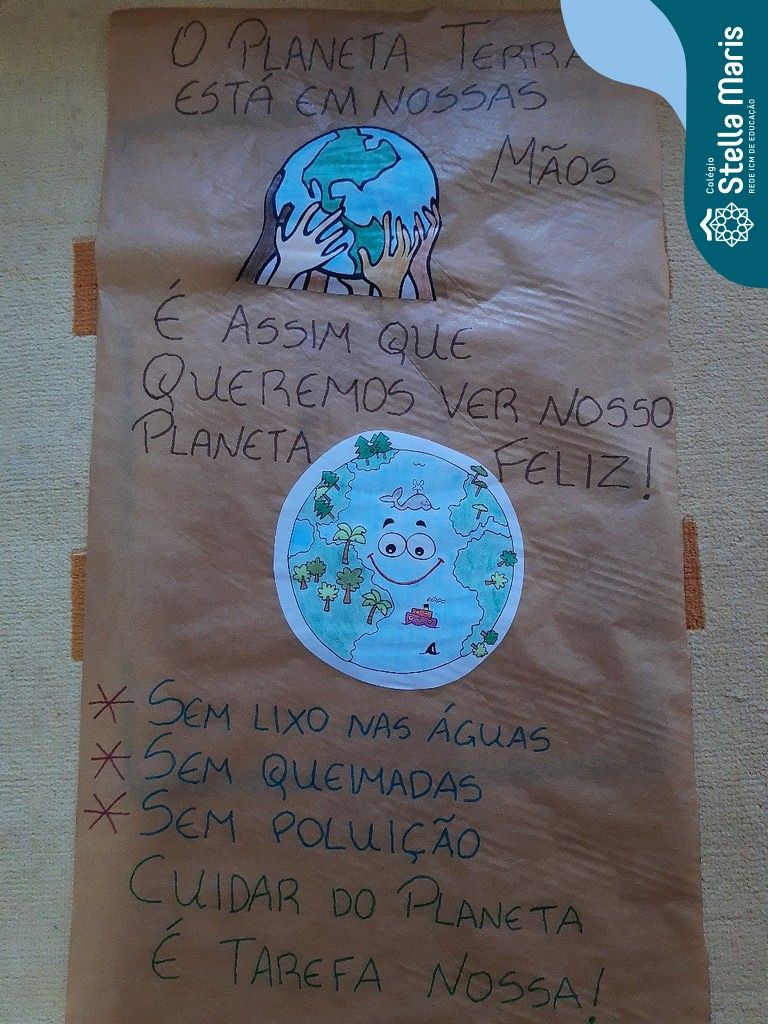 O PLANETA TERRA
ESTÁ EM NOSSAS
MÃOS
É ASSIM QUE
QUEREMOS VER NOSSO
PLANETA FELIZ!
* SEM LIXO NAS ÁGUAS
* SEM QUEIMADAS
* SEM POLUIÇÃO
CUIDAR DO PLANETA
É TAREFA NOSSA!
Colégio
Stella Maris
REDE ICM DE EDUCAÇÃO